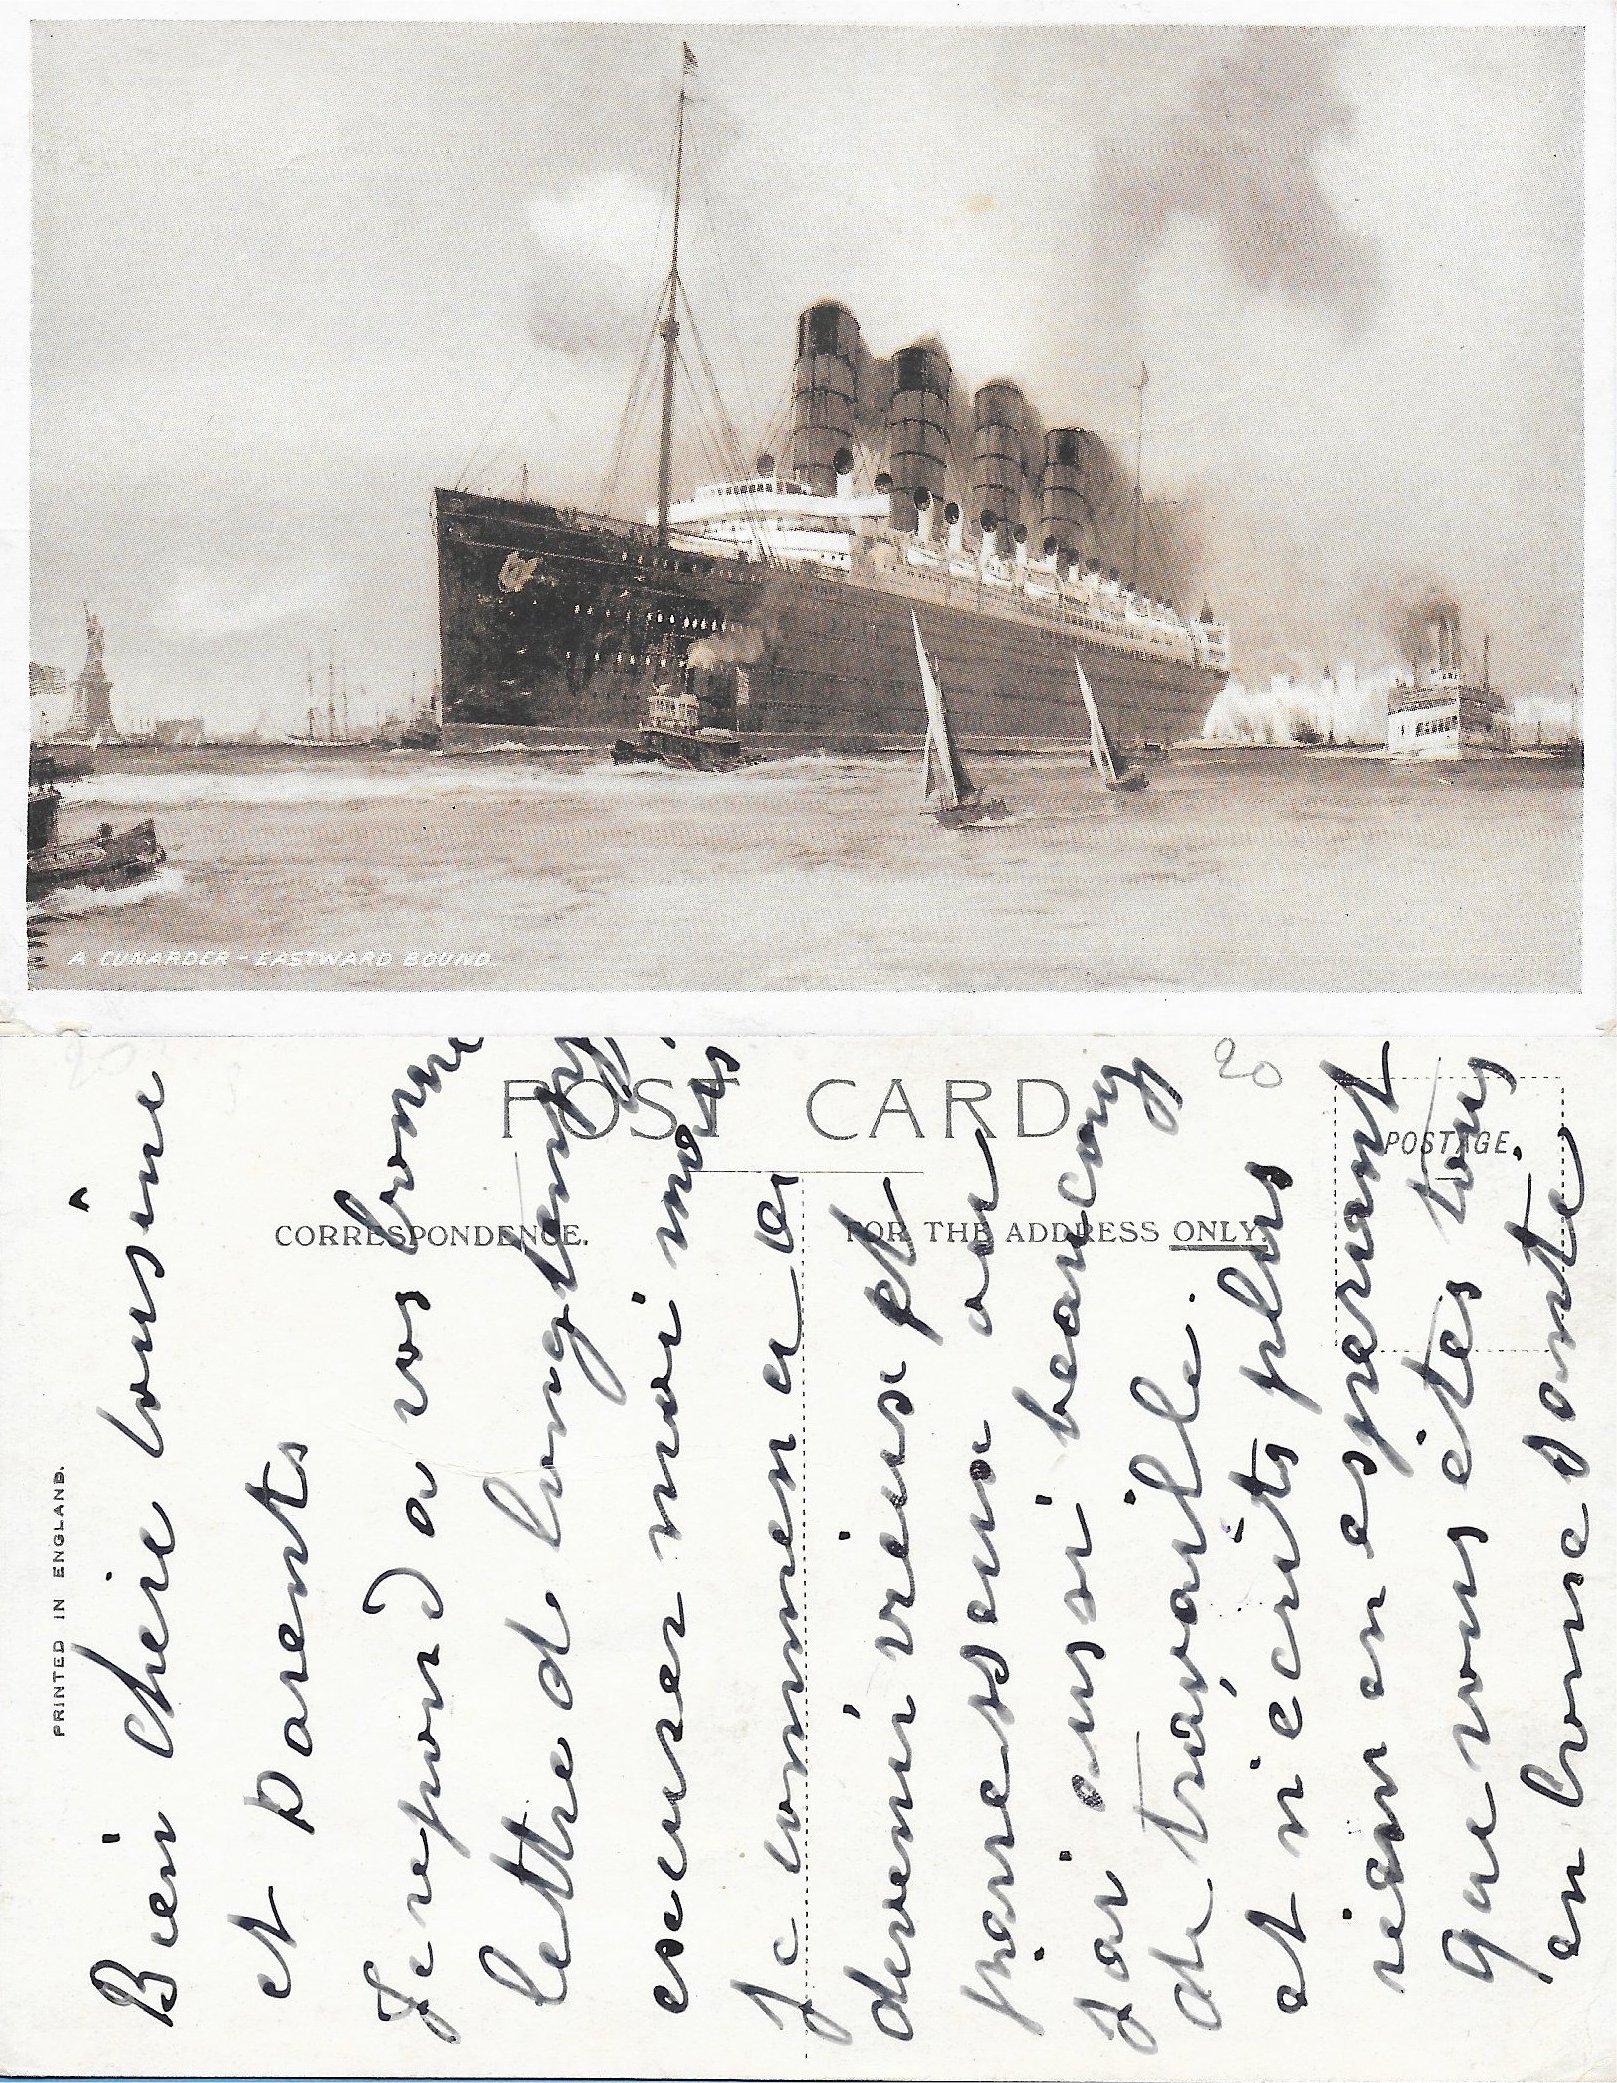 A CUNARDER - EASTWARD BOUND
POST CARD
CORRESPONDENCE.
FOR THE ADDRESS ONLY.
POSTAGE.
PRINTED IN ENGLAND.
20
Bien chere cousine
et Parents
Je repond a vos bonne
lettre d longtemps
escuser moi mais
Je commence a
devenir vieux et
paresseux au
J ai aussi beaucoup
de travaille.
et n'ecrits plus
rien en esperant
que vous êtes tous
en bonne sante